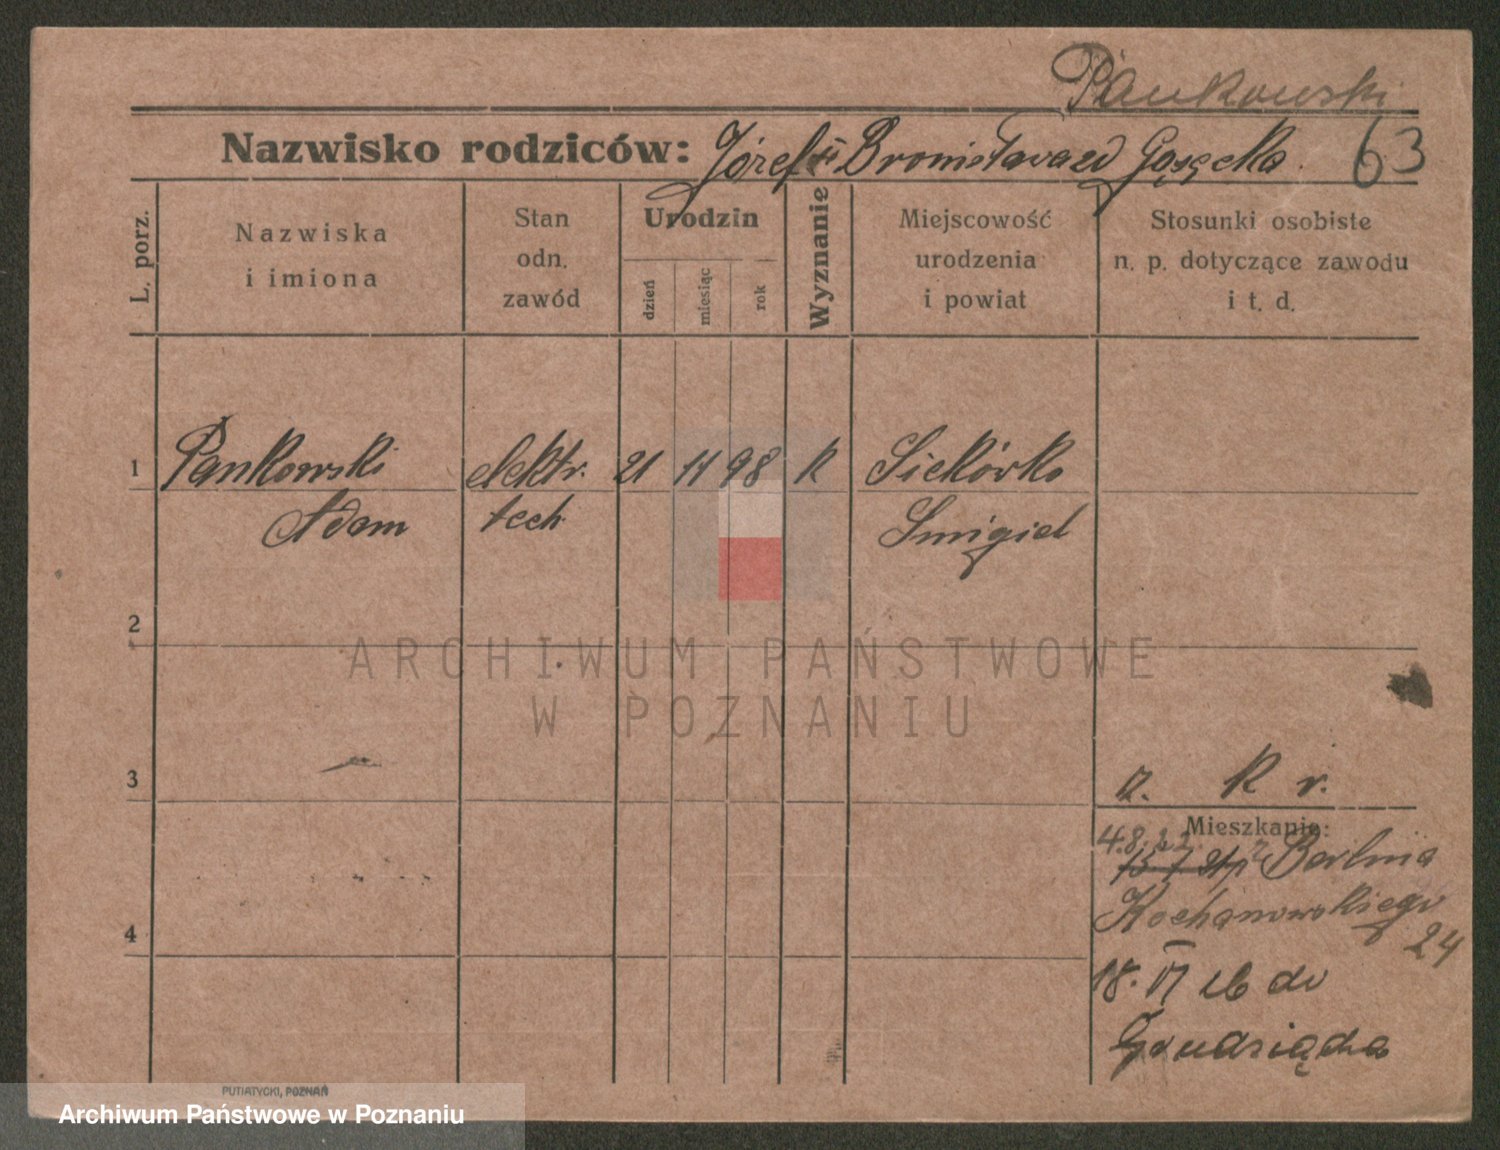 Pankowski
Nazwisko rodziców: Józef i Bronisława zd Gąsęcka. 63
L. porz.
Nazwiska
i imiona
Stan
odn.
zawód
Urodzin
dzień
miesiąc
rok
Wyznanie
Miejscowość
urodzenia
i powiat
Stosunki osobiste
n. p. dotyczące zawodu
i t. d.
1 Pankowski elektr. 21 11 98 k Siekówko
Adam tech Śmigiel
2
ARCHIWUM PAŃSTWOWE
W POZNANIU
3
k r.
Mieszkanie:
4.8.22. z Berlina
Kochanowskiego
24
4
18. VI 26 do
Grudziądza
PUTIATYCKI, POZNAŃ
Archiwum Państwowe w Poznaniu